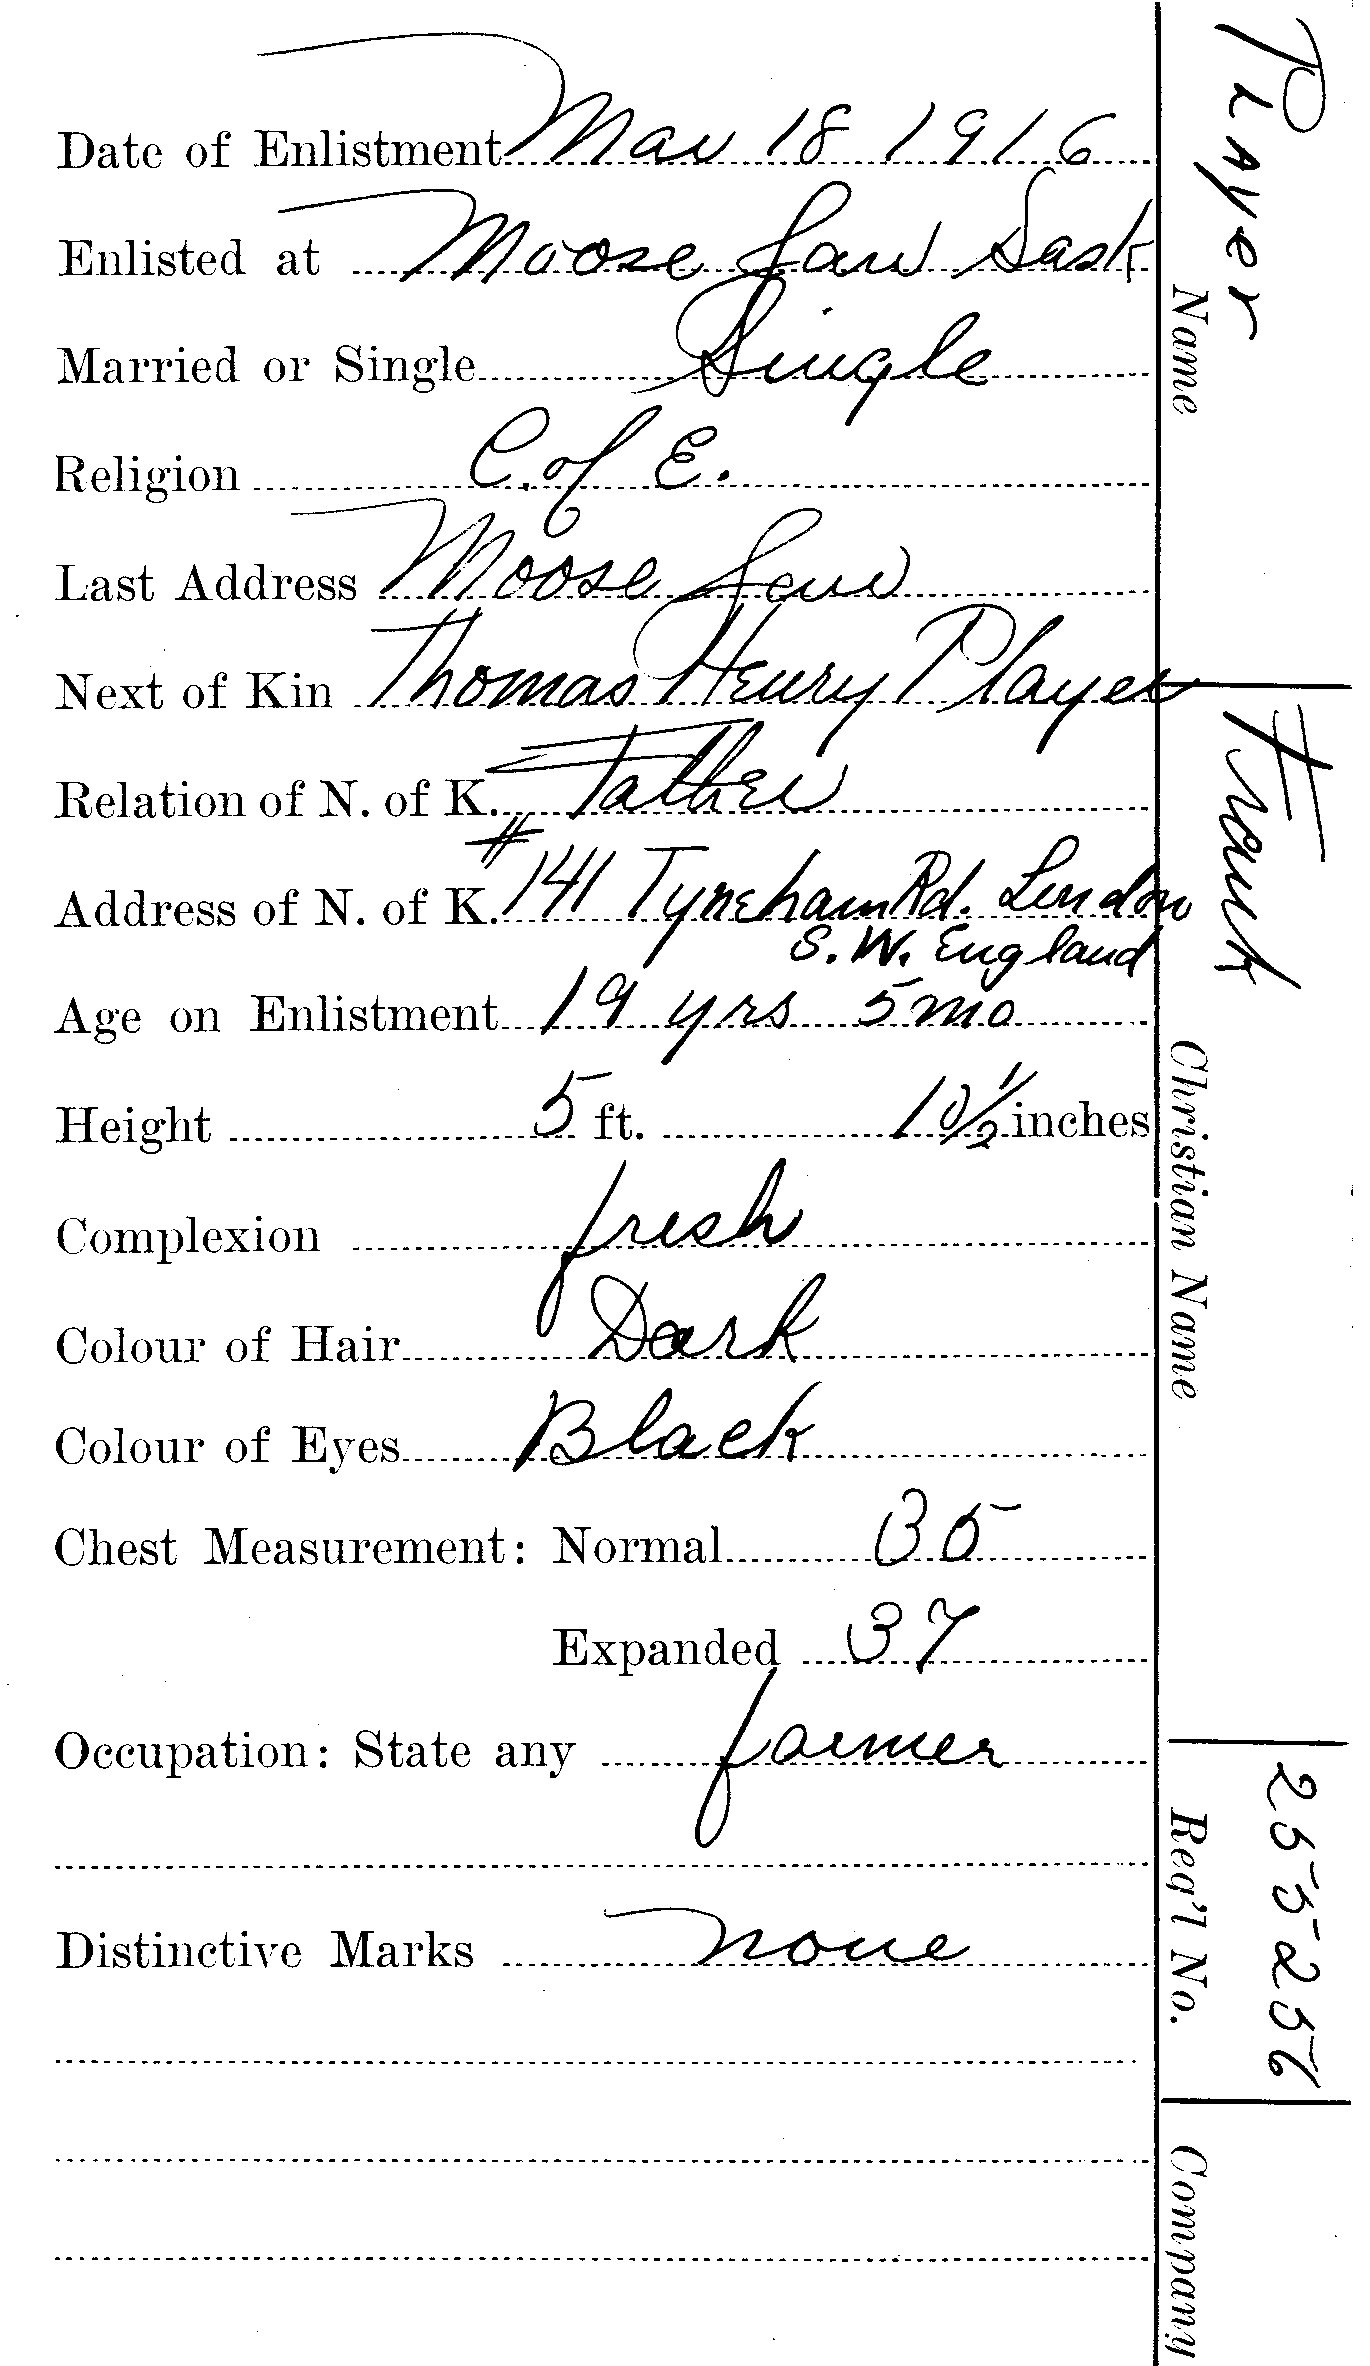 Date of Enlistment Mar 18 1916
Enlisted at Moose Jaw Sask
Married or Single Single
Religion C. of E.
Last Address Moose Jaw
Next of Kin Thomas Henry Player
Relation of N. of K. Father
Address of N. of K. #141 Tyneham Rd. London
S. W. England
Age on Enlistment 19 yrs 5 mo
Height 5 ft. 10 1/2 inches
Complexion fresh
Colour of Hair Dark
Colour of Eyes Black
Chest Measurement: Normal 35
Expanded 37
Occupation: State any farmer
Distinctive Marks none
Player
Name
Frank
Christian Name
255256
Req'l No.
Company